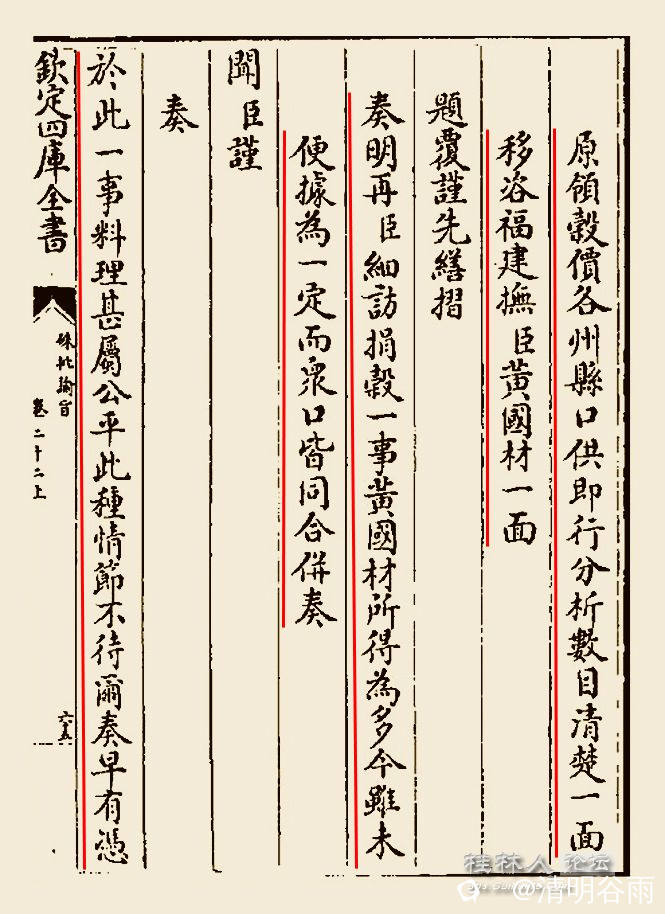 原領穀價各州縣口供即行分析數目清楚一面
移咨福建撫臣黃國材一面
題覆謹先繕摺
奏明再臣細訪捐穀一事黃國材所得為多今雖未
便據為一定而眾口皆同合併奏
聞臣謹
奏
於此一事料理甚屬公平此種情節不待爾奏早有憑
欽定四庫全書
硃批諭旨
卷二十二上
六五
桂林人论坛
@清明谷雨